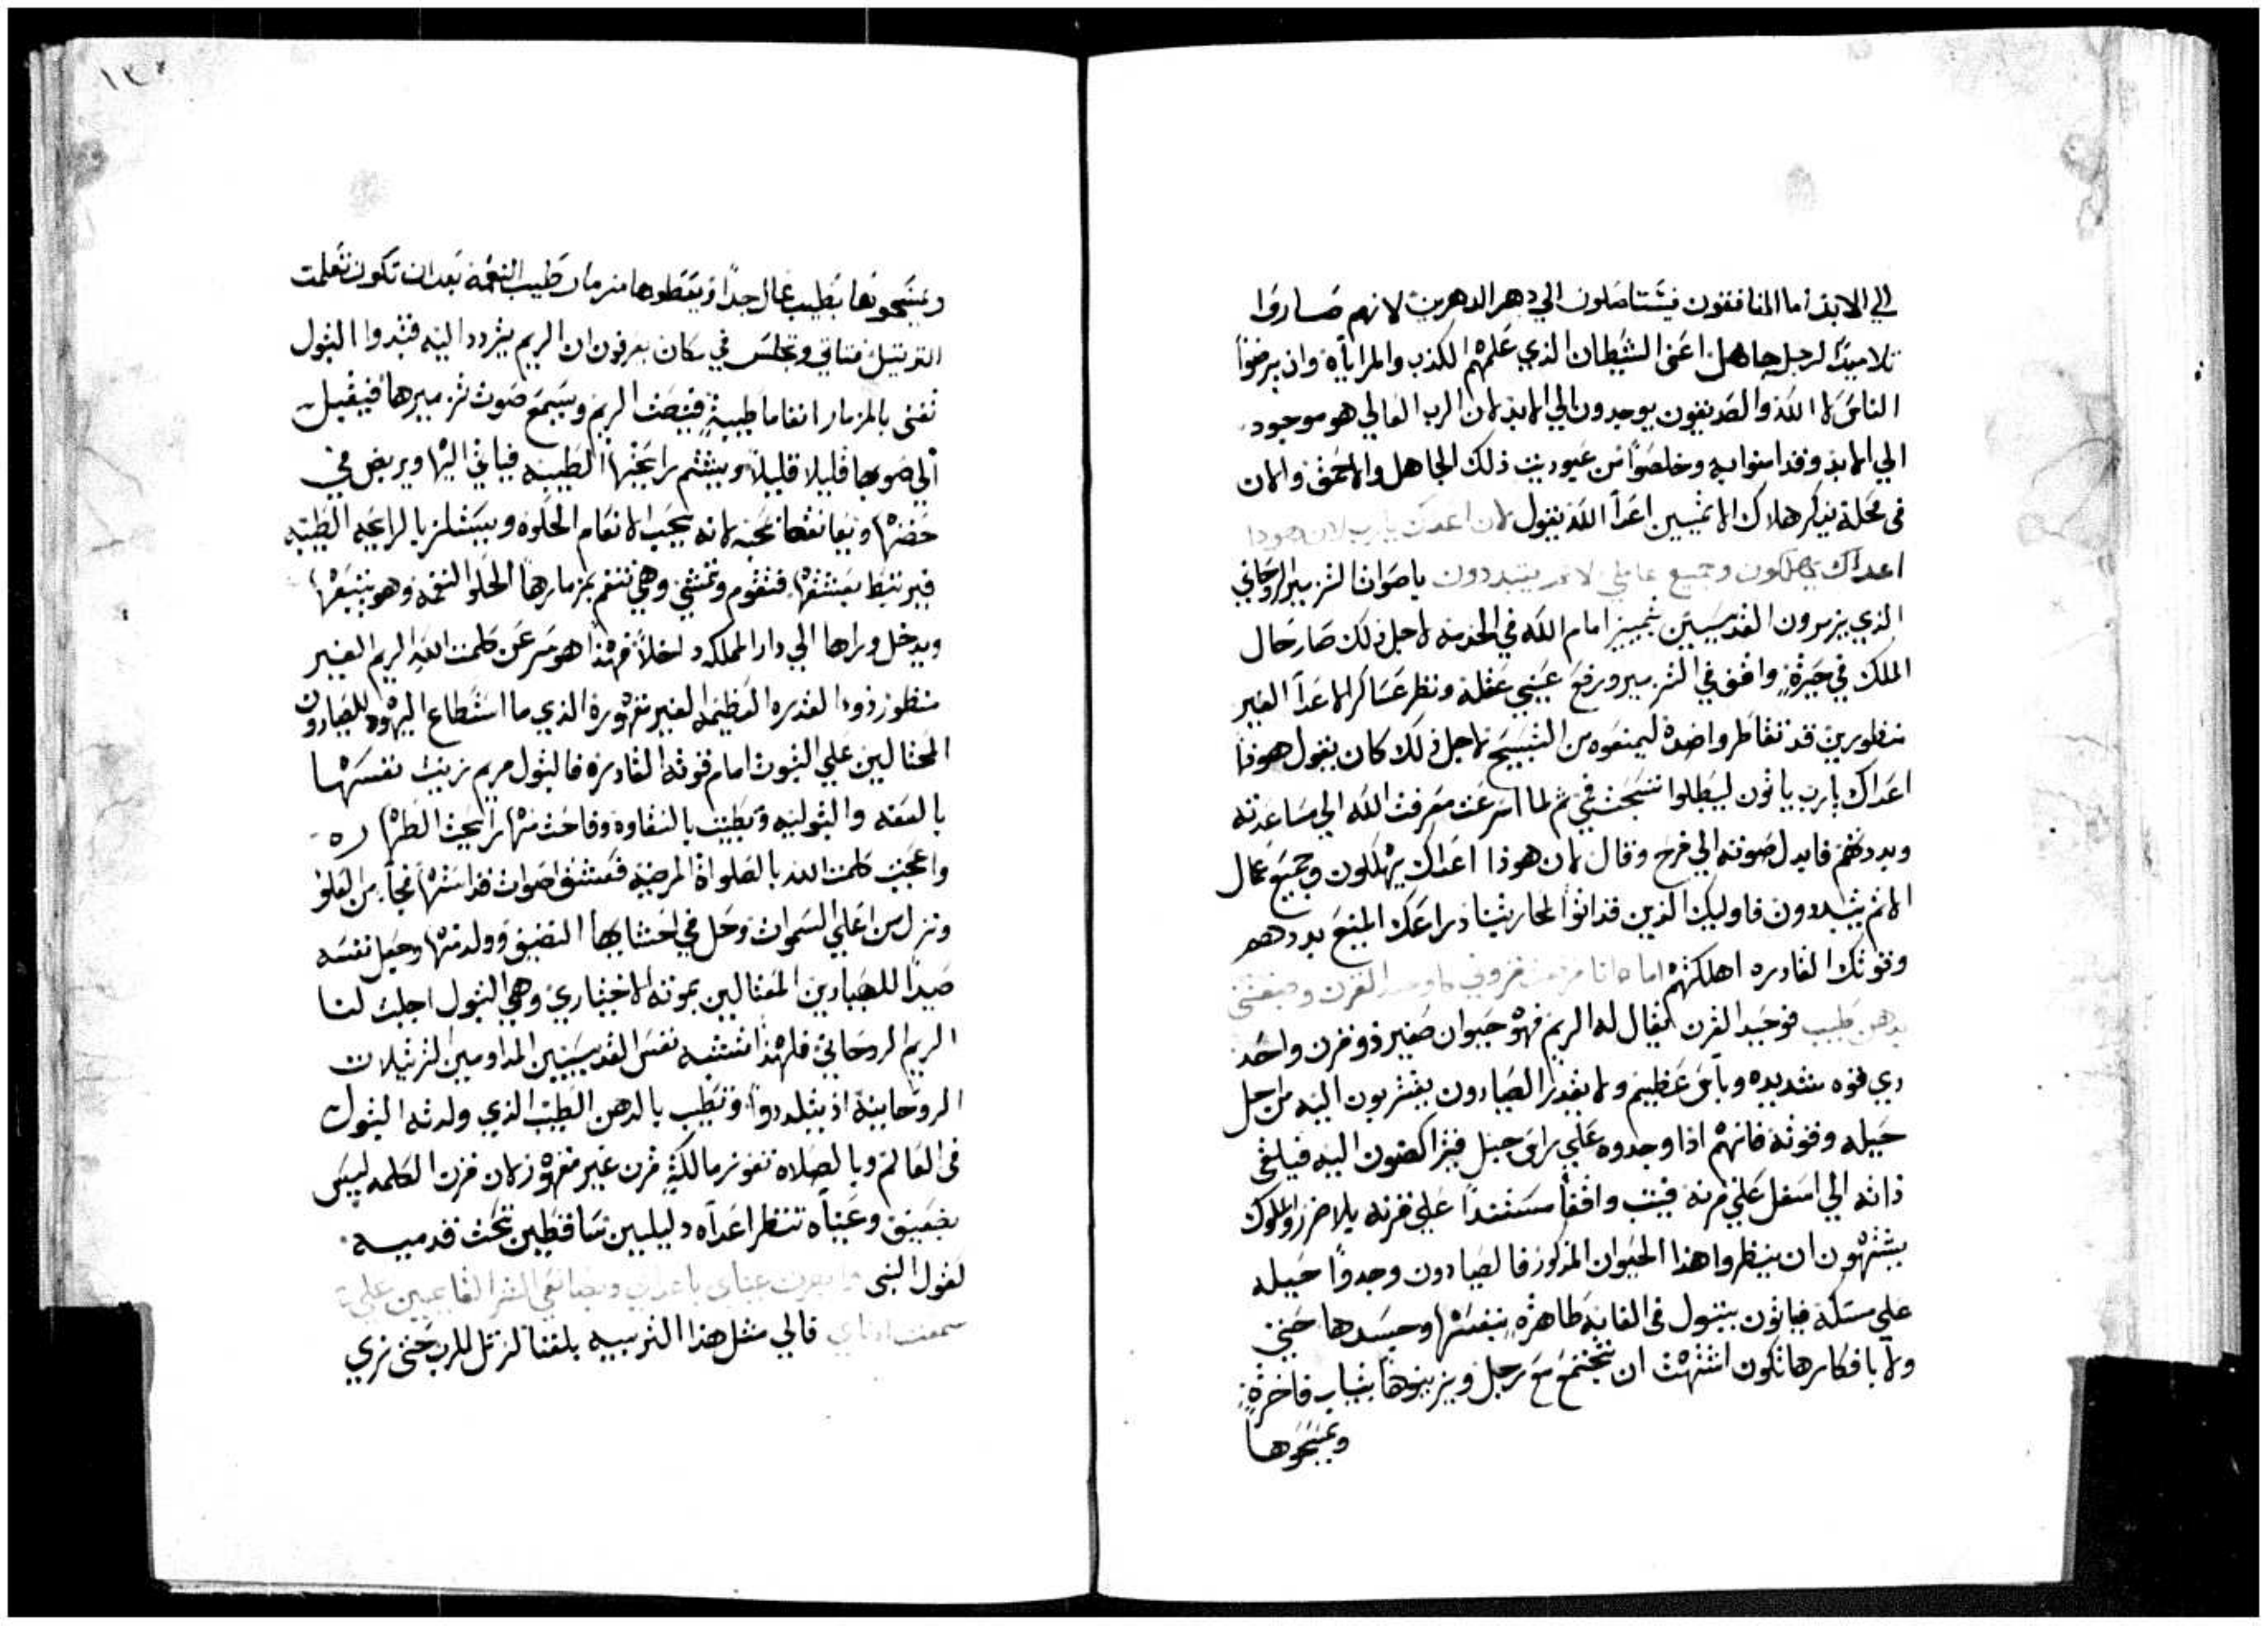 الي الابد اما المنافقون فيستاصلون الي دهر الداهرين لانهم صاروا
تلاميذًا لرجل جاهل اعني الشيطان الذي علمهم الكذب والمرايأة وان يرضوا
الناس لا الله والصديقون يوجدون الي الابد لان الرب العالي هو موجود
الي الابد وقد امنوا به وخلصوا من عبوديت ذلك الجاهل والاحمق والان
في محلة يذكر هلاك الاثمين اعدآ الله يقول لان اعداك يا رب لان هوذا
اعداك يهلكون وجميع عاملي الاثم يتبددون ياصوات التزمير الروحاني
الذي يزمرون القديسين بتمييز امام الله في الخدمه لاجل ذلك صار حال
الملك في حيرةٍ واقف في التزمير ورفع عيني عقله ونظر عساكر الاعدآ الغير
منظورين قد تقاطروا ضده ليمنعوه من التسبيح لاجل ذلك كان يقول هوذا
اعداك يا رب ياتون ليبطلوا تسبحتي ثم لما اسرعت معرفت الله الي مساعدته
وبددتهم فابدل صوته الي فرح وقال لان هوذا اعداك يهلكون وجميع عمال
الاثم يتبددون فاوليك الذين قد اتوا لمحاربتنا ذراعك المنيع بددهم
وقوتك القادره اهلكتهم اما انا فرفعت قرني كوحيد القرن
بدهن طيب فوحيد القرن يقال له الريم فهو حيوان صغير ذو قرن واحد
ذي قوه شديده وبأس عظيم ولا يقدر الصيادون يقتربون اليه من اجل
حيله وقوته فانهم اذا وجدوه علي راس جبل فيتراكضون اليه فيلقي
ذاته الي اسفل علي قرنه فيثبت واقفًا مستندًا علي قرنه بلا ضرر والملوك
يشتهون ان ينظروا هذا الحيوان المذكور فالصيادون وجدوا حيله
علي مسكه فياتون ببتول في الغايه طاهرةٍ بنفسها وجسدها حتي
ولا بافكارها تكون اشتهت ان تجتمع مع رجل ويزينوها بثياب فاخرةٍ
ويمسحوها
١٣٠
ويمسحونها بطيب غال جدًا ويعطوها مزمار طيب النغمه بعد ان تكون تعلمت
الترتيل فتاتي وتجلس في مكان يعرفون ان الريم يتردد اليه فتبدوا البتول
تغني بالمزمار انغاما طيبةٍ فينصت الريم ويسمع صوت تزميرها فيقبل
الي صوتها قليلا قليلاً ويشتم رايحتها الطيبه فياتي اليها ويربض في
حضنها ويعانقها بمحبه لانه يحب الانغام الحلوه ويستلذ بالرايحه الطيبه
فيرتبط بعشقها فتقوم وتمشي وهي تنغم بمزمارها الحلو النغمه وهو يتبعها
ويدخل وراها الي دار المملكه داخلاً فهذا هو سر عن كلمت الله الريم الغير
منظور ذو القدره العظيمه الغير مقهورة الذي ما استطاع اليهود الصيادون
المحتالين علي الثبوت امام قوته القادره فالبتول مريم زينت نفسها
بالعفه والبتوليه وتطيبت بالنقاوه وفاحت منها رايحت الطهاره
واعجبت كلمت الله بالصلواة المرضيه فعشق اصوات قداستها فجآ من العلو
ونزل من اعلي السموات وحل في احشايها النضيف وولد منها وجعل نفسه
صيدًا للصيادين المغتالين بموته الاختياري وهي البتول اجلبت لنا
الريم الروحاني فلهذا تشتبه نفس القديسين المداومين الترتيلات
الروحانية اذ يتلددوا وتطيب بالدهن الطيب الذي ولدته البتول
في العالم وبالصلاه تفوز مالكةٍ قرن غير مقهور لان قرن الكلمه ليس
بضعيف وعيناه تنظر اعدآه دليلين ساقطين تحت قدميه
لقول النبي وابصرت عيناي باعدايي وبصانعي الشر القايمين علي
سمعت اذناي فالي مثل هذا الترتيب بلغنا لنرتل للرب حتي نري